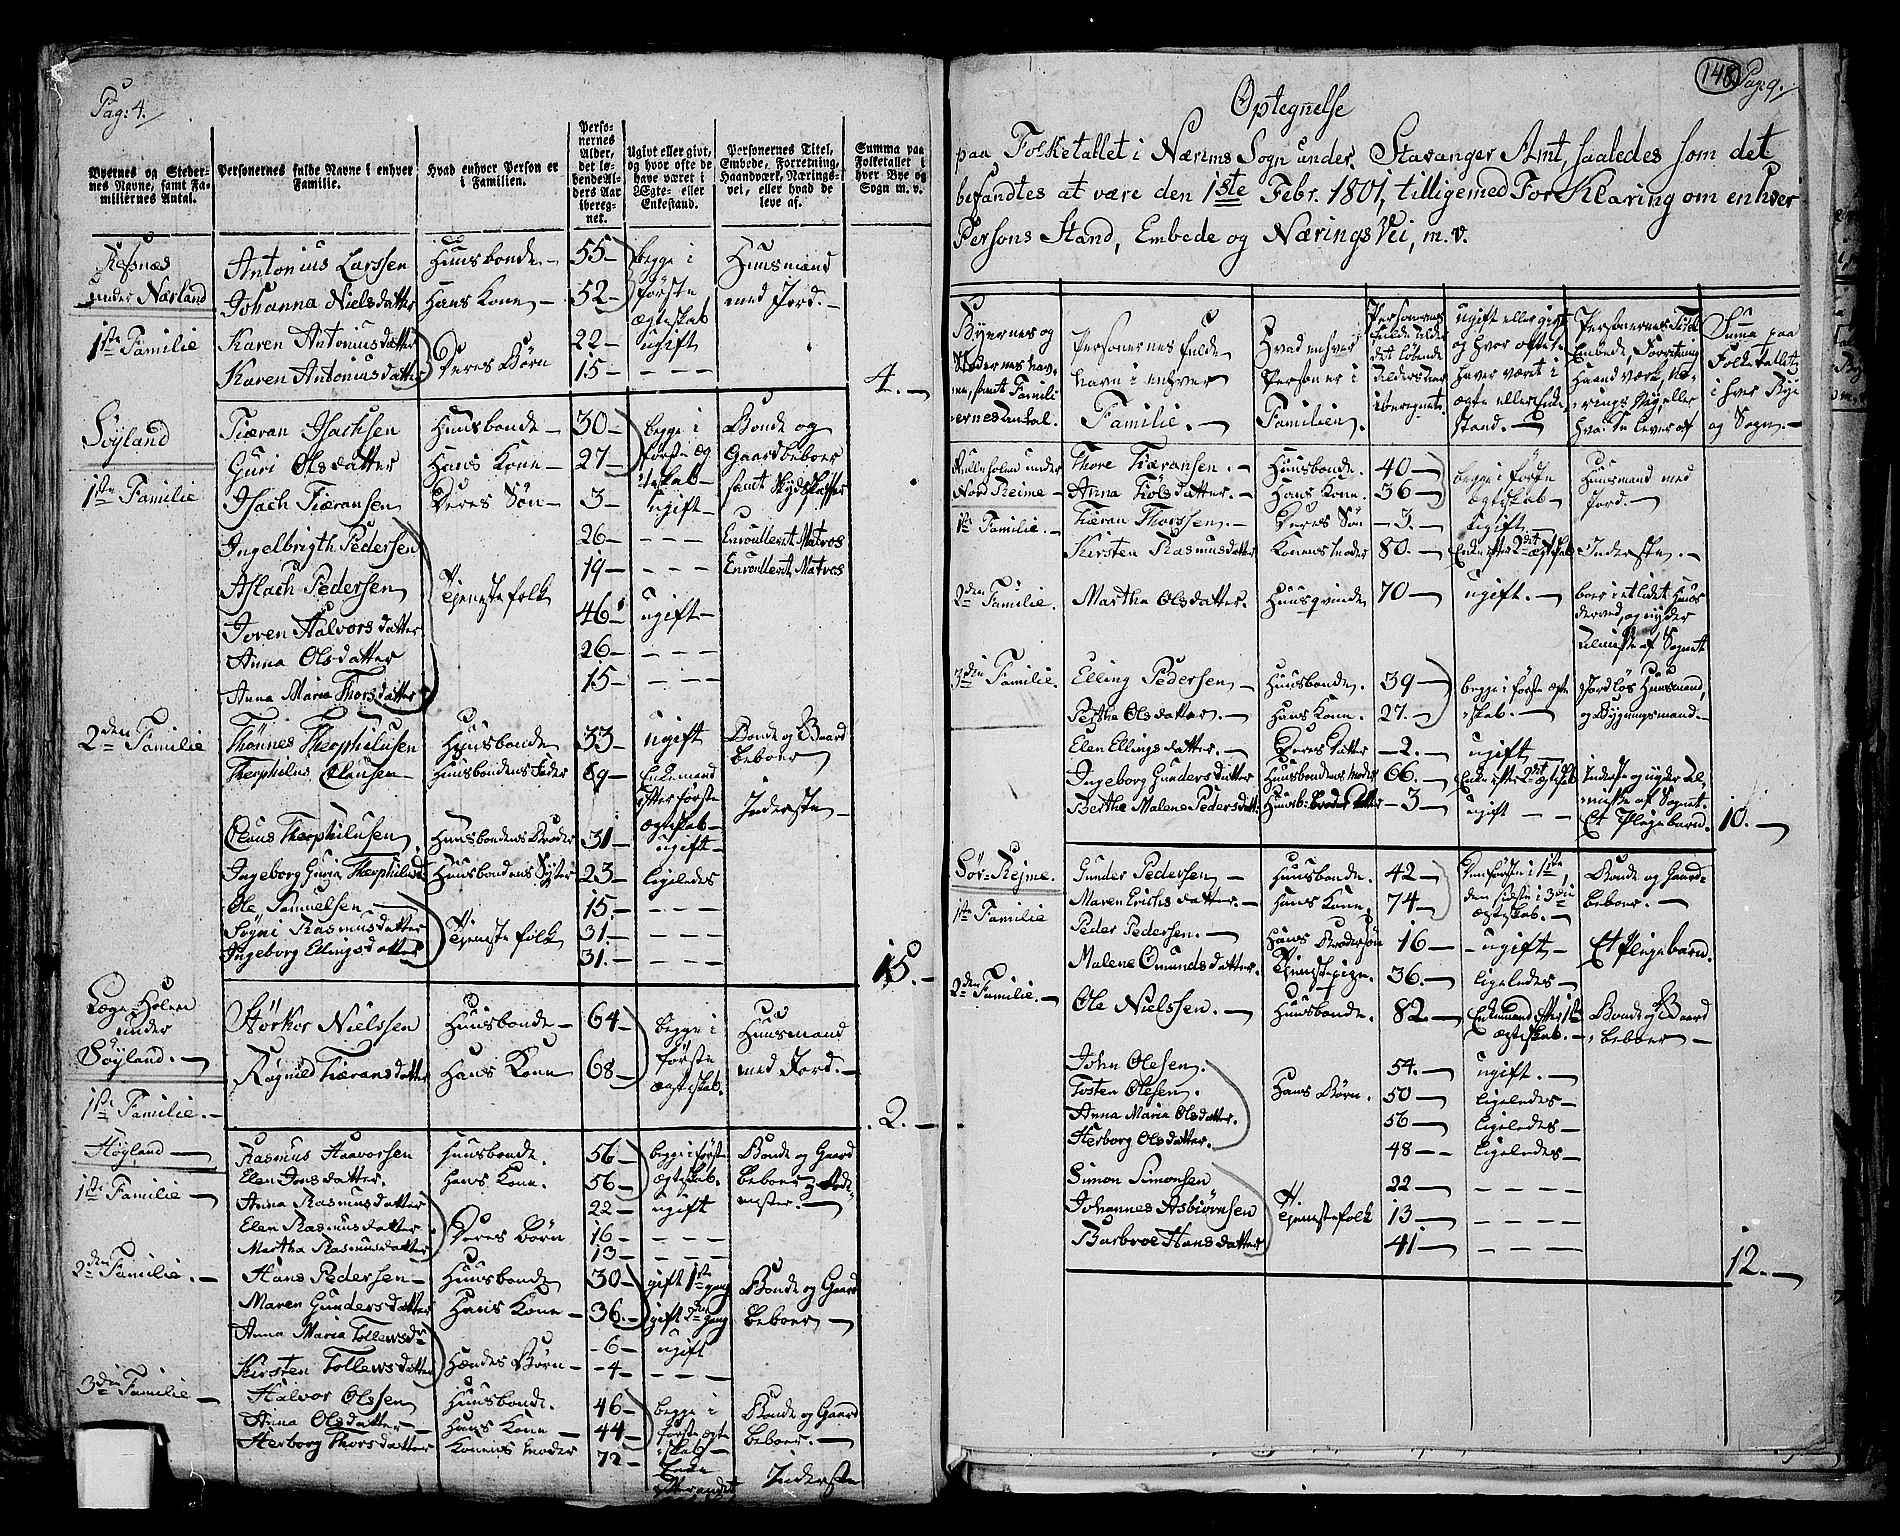 Pag: 4.
Byernes og Steder-
nes Navne, samt Fa-
miliernes Antal.
Personernes fulde Navne i enhver
Familie.
Hvad enhver Person er
i Familien.
Perso-
nernes
Alder,
det lø-
bende Al-
ders Aar
iberegnet.
Ugivt eller givt,
og hvor ofte de
have været i
Ægte- eller
Enkestand.
Personernes Titel,
Embede, Forretning,
Haandværk, Nærings-
vei, eller hvad de
leve af.
Summa paa
Folketallet i
hver Bye og
Sogn m. v.
Refsnæs under Nærland
1ste Familie
Antonius Larssen Huusbonde 55 begge i første ægteskab Huusmand med Jord.
Johanna Nielsdatter Hans Kone 52
Karen Antoniusdatter Deres Børn 22 ugift
Karen Antoniusdatter 15 – – –
4.
Søyland
1ste Familie
Tiæran Isachsen Huusbonde 30 begge i første ægteskab Bonde og Gaardbeboer samt Skydskaffer
Guri Olsdatter Hans Kone 27
Isach Tiæransen Deres Søn 3 ugift
Ingelbrigth Pedersen Tjenestefolk 26 – – – Enroulleret Matros
Aslach Pedersen 19 – – – Enroulleret Matros
Joren Halvorsdatter 46 ugift
Anna Olsdatter 26 – – –
Anna Maria Thorsdatter 15 – – –
2den Familie
Thønnes Theophilusen Huusbonde 33 ugift Bonde og Gaard beboer
Theophilus Clausen Huusbondens Fader 69 Enkemand efter første ægteskab Inderste
Claus Theophilusen Huusbondens Broder 31 ugift
Ingeborg Guria Theophilusd. Huusbondens Syster 23 ligeledes
Ole Samuelsen Tjenestefolk 15 – – –
Søgni Rasmusdatter 31 – – –
Ingeborg Ellingsdatter 31 – – –
15.
Holen under Søyland.
1ste Familie.
Størkor Nielssen Huusbonde 64 begge i første ægteskab. Huusmand med Jord.
Ragnild Tiæransdatter Hans Kone 68
2.
Høyland
1ste Familie
Rasmus Haavorsen Huusbonde. 56 begge i første ægteskab. Bonde og Gaard beboer
Elen Jonsdatter. Hans Kone. 56
Anna Rasmusdatter Deres Børn 22 ugift
Elen Rasmusdatter 16 – – –
Martha Rasmusdatter 13 – – –
2den Familie.
Hans Pedersen Huusbonde 30 gift 1ste gang Bonde og Gaard beboer
Maren Gundersdatter Hans Kone 36 gift 2den gang
Anna Maria Tollewsdr Hændes Børn 6 ugift
Kirsten Tollewsdatter 4 – – –
3die Familie
Halvor Olssen Huusbonde. 46 begge i første ægteskab Bonde og Gaard beboer.
Anna Olsdatter Hans Kone 44
Herborg Thorsdatter Konens Moder 72 Enke Inderste
148
Pag: 9.
Optegnelse
paa Folketallet i Nærims Sogn under Stavanger Amt, saaledes som det
befandtes at være den 1ste Febr. 1801, tilligemed Forklaring om enhver
Persons Stand, Embede og NæringsVei, m. v.
Byernes og Stedernes navne, samt Familiernes Antal.
Personernes fulde navn i enhver Familie.
Hvad enhver Person er i Familien.
Personernes fulde Alder det løbende Alders Aar iberegnet.
ugift eller gift og hvor ofte haver været i ægte eller Enke Stand.
Personernes Titel Embede, Forretning Haandværk, Nærings Vej, eller hvad de lever af
Summa paa Folketallet i hver Bye og Sogn.
under Nord Reime
1ste Familie.
Thore Tiæransen. Huusbonde. 40 begge i første ægteskab Huusmand med Jord.
Anna Tolsdatter. Hans Kone. 36
Tiæran Thorssen. Deres Søn 3. ugift.
Kirsten Rasmusdatter Konens Moder 80. Enke efter 2det ægteskab Inderste.
2den Familie.
Martha Olsdatter. Huusqvinde 70 ugift. boer i et lidet Huus derved, og nyder Almisse af Sognet
3die Familie.
Elling Pedersen Huusbonde. 39 begge i første ægteskab. Jordløs Huusmand, og Bygningsmand.
Berthe Olsdatter. Hans Kone. 27.
Elen Ellingsdatter. Deres Datter 2. ugift
Ingeborg Gundersdatter Huusbondens Moder 66. Enke efter 2det ægteskab Inderste og nyder Almisse af Sognet.
Berthe Malene Pedersdatt. Huusb: Broder Datter 3 ugift Et Plejebarn.
10.
Sør-Rejme.
1ste Familie
Gunder Pedersen Huusbonde. 42 den første i 1ste, den sidste i 3die ægteskab. Bonde og Gaardbeboer.
Maren Erichsdatter. Hans Kone 74
Peder Pedersen. Hans Brodersøn 16 ugift Et Plejebarn.
Malene Omundsdatter. Tjenstepige. 36. ligeledes
2den Familie.
Ole Nielssen. Huusbonde. 82 Enkemand efter 1ste ægteskab. Bonde og Gaard beboer
John Olesen. Hans Børn. 54. ugift.
Tosten Olesen. 50 ligeledes
Anna Maria Olsdatter. 56 ligeledes
Herborg Olsdatter. 48 ligeledes
Simon Simonsen Tjenestefolk 22 – – – –
Johannes Asbiørnsen 13 – – – –
Barbroe Hansdatter 41 – – – –
12.